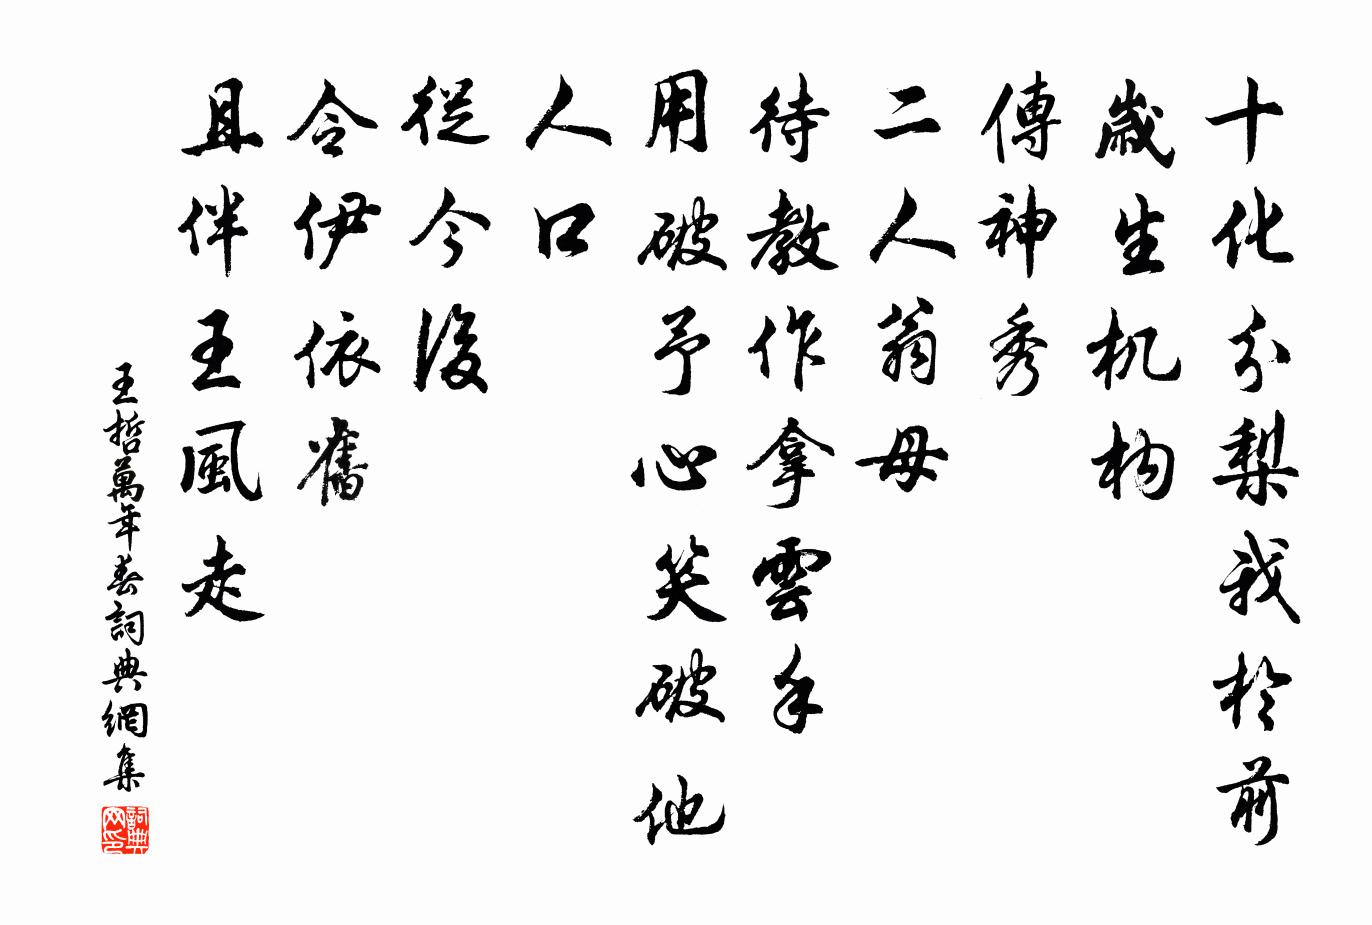 十化分梨我於前
歲生机构
傳神秀
二人翁母
待教作拿雲手
用破予心笑破他
人口
從今後
令伊依舊
且伴王風走
王哲萬年春詞典網集
詞典网印